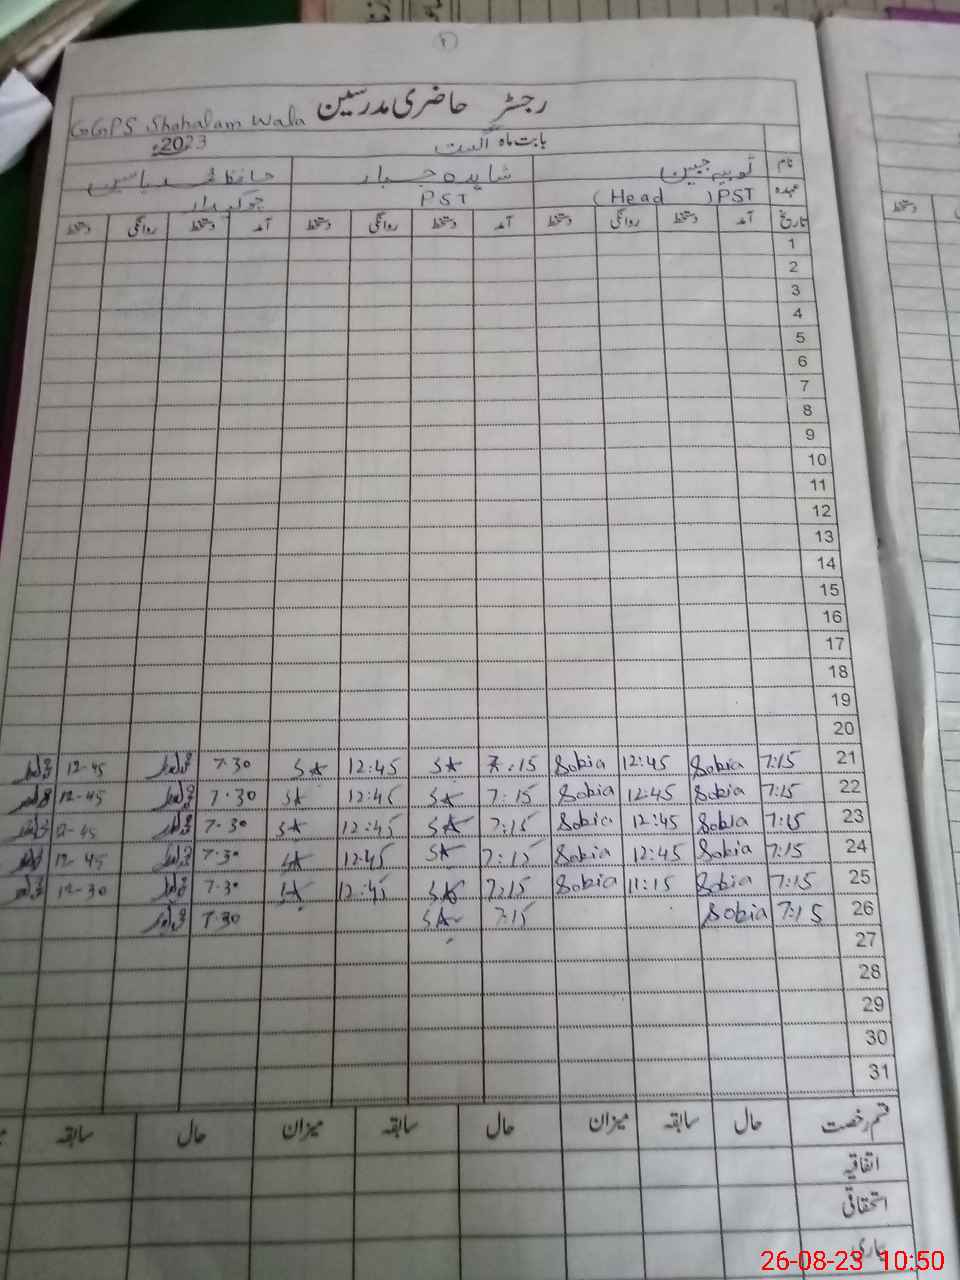 رجسٹر حاضری مدرسین GGPS Shahalam Wala
بابت ماہ اگست 2023
نام ثوبیہ جبین شاہدہ جبار حافظ محمد یاسین
عہدہ PST (Head) PST چوکیدار
تاریخ آمد دستخط روانگی دستخط آمد دستخط روانگی دستخط آمد دستخط روانگی دستخط
1
2
3
4
5
6
7
8
9
10
11
12
13
14
15
16
17
18
19
20
21 7:15 Sobia 12:45 Sobia 7:15 12:45 7.30 12-45
22 7:15 Sobia 12:45 Sobia 7:15 12:45 7.30 12-45
23 7:15 Sobia 12:45 Sobia 7:15 12:45 7.30 12-45
24 7:15 Sobia 12:45 Sobia 7:15 12:45 7.30 12-45
25 7:15 Sobia 11:15 Sobia 7:15 12:45 7.30 12-30
26 7:15 Sobia 7:15 7.30
27
28
29
30
31
قسم رخصت حال سابقہ میزان حال سابقہ میزان حال سابقہ
اتفاقیہ
استحقاقی
بیماری
26-08-23 10:50